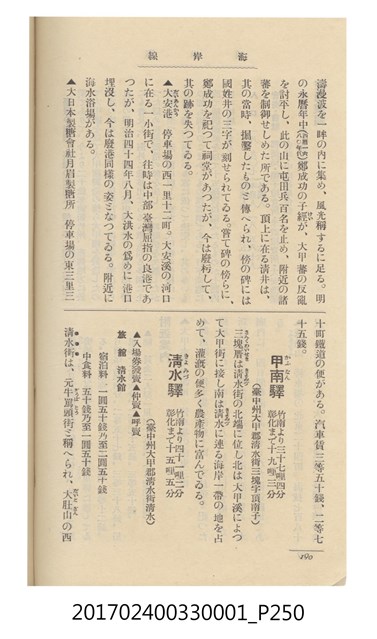 海岸線
濤漫波を一眸の内に集め、風光稱するに足る。明
の永曆年中鄭成功の子經が、大甲蕃の反亂
を討平し、此の山に屯田兵百名を止め、附近の諸
蕃を制御せしめた所である。頂上に在る淸井は、
其の當時、掘鑿したものと傳へられ、傍の碑には
國姓井の三字が刻せられてゐる。嘗て碑の傍らに、
鄭成功を祀つて祠堂があつたが、今は廢朽して、
其の跡を失つてゐる。
▲大安港 停車場の西一里十二町。大安溪の河口
に在る一小街で、往時は中部臺灣屈指の良港であ
つたが、明治四十四年八月、大洪水の爲めに港口
埋沒し、今は廢港同樣の姿となつてゐる。附近に
海水浴場がある。
▲大日本製糖會社月眉製糖所 停車場の東三里三
十町鐵道の便がある。汽車賃三等五十錢、二等七
十五錢。
甲南驛
竹南より三十七哩四分
彰化まで十九哩三分
(臺中州大甲郡淸水街三塊字頂南子)
三塊厝は淸水街の北端に位し北は大甲溪によつ
て大甲街に接し南は淸水に連る海岸一帶の地を占
めて、灌漑の便多く農產物に富んでゐる。
淸水驛
竹南より四十一哩二分
彰化まで十五哩五分
(臺中州大甲郡淸水街淸水)
▲入場券發賣▲仲賣▲呼賣
旅館 淸水館
宿泊料 一圓五十錢乃至二圓五十錢
中食料 五十錢乃至一圓五十錢
淸水街は、元牛罵頭街と稱へられ、大肚山の西
190
201702400330001_P250